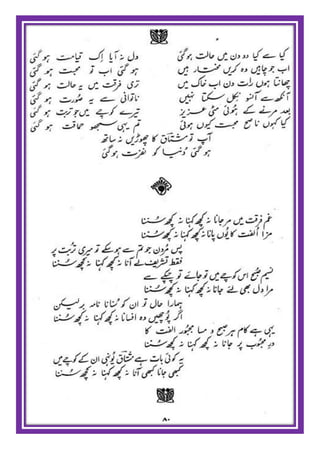 کیا سے کیا دو دن میں حالت ہوگئی
دل نہ آیا اِک قیامت ہو گئی
اب جو چاہیں وہ کریں مختار ہیں
ہو گئی اب تو محبت ہو گئی
چھانتا ہوں رات دن اب خاک میں
تری فرقت میں یہ حالت ہو گئی
آنکھ سے آنسو نکل سکتے نہیں
ناتوانی سے یہ صورت ہو گئی
بعد مرنے کے ہوئی مٹی عزیز
تیرے کوچے میں جو تربت ہو گئی
کیا کہوں ناصح محبت کیوں ہوئی
تم یہی سمجھو حماقت ہو گئی
آپ تو مشتاق کا چھوڑیں نہ ساتھ
ہو گئی دنیا کو نفرت ہوگئی
غمِ فرقت میں مر جانا نہ کچھ کہنا نہ کچھ سُننا
مزا اُلفت کا یوں پانا نہ کچھ کہنا نہ کچھ سُننا
پسِ مُردن جو تم سے ہو سکے تو میری تربت پر
فقط تشریف لے آنا نہ کچھ کہنا نہ کچھ سُننا
نسیمِ صبح اس کوچے میں تو جائے تو چپکے سے
مرا دل بھی لئے جانا نہ کچھ کہنا نہ کچھ سُننا
ہمارا حال تو ان کو سُنانا نامہ بر لیکن
اگر پوچھیں وہ افسانا نہ کچھ کہنا نہ کچھ سُننا
یہی ہے کام ہر صبح و مسا مجبورِ الفت کا
درِ محبوب پر جانا نہ کچھ کہنا نہ کچھ سُننا
یہ کوئی بات ہے مشتاق یونہی ان کے کوچے میں
کبھی جانا کبھی آنا نہ کچھ کہنا نہ کچھ سُننا
۸۰